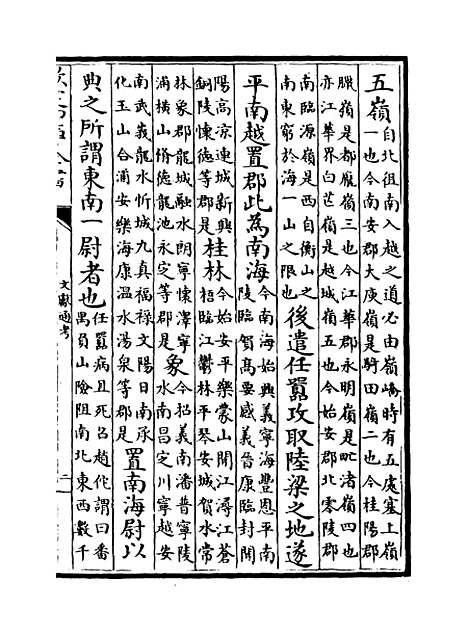 五嶺
自北徂南入越之道必由嶺嶠時有五處塞上嶺
一也今南安郡大庾嶺是騎田嶺二也今桂陽郡
臘嶺是都龎嶺三也今江華郡永明嶺是甿渚嶺四也
亦江華界白芒嶺是越城嶺五也今始安郡北零陵郡
南臨源嶺是西自衡山之
南東窮於海一山之限也
後遣任囂攻取陸梁之地遂
平南越置郡此為南海
今南海始興義寧海豐恩平南
陵臨賀高要感義晉康臨封開
陽高涼連城新興
銅陵懷德等郡是
桂林
今始安平樂蒙山開江潯江蒼
梧臨江鬱林平琴安城賀水常
林象郡龍城融水朗寧懷澤寧
浦橫山脩德龍池永定等郡是
象
今招義南潘普寧陵
水南昌定川寧越安
南武義龍水忻城九真福祿文陽日南承
化玉山合浦安樂海康温水湯泉等郡是
置南海尉以
典之所謂東南一尉者也
任囂病且死召趙佗謂曰番
禺負山險阻南北東西數千
文獻通考